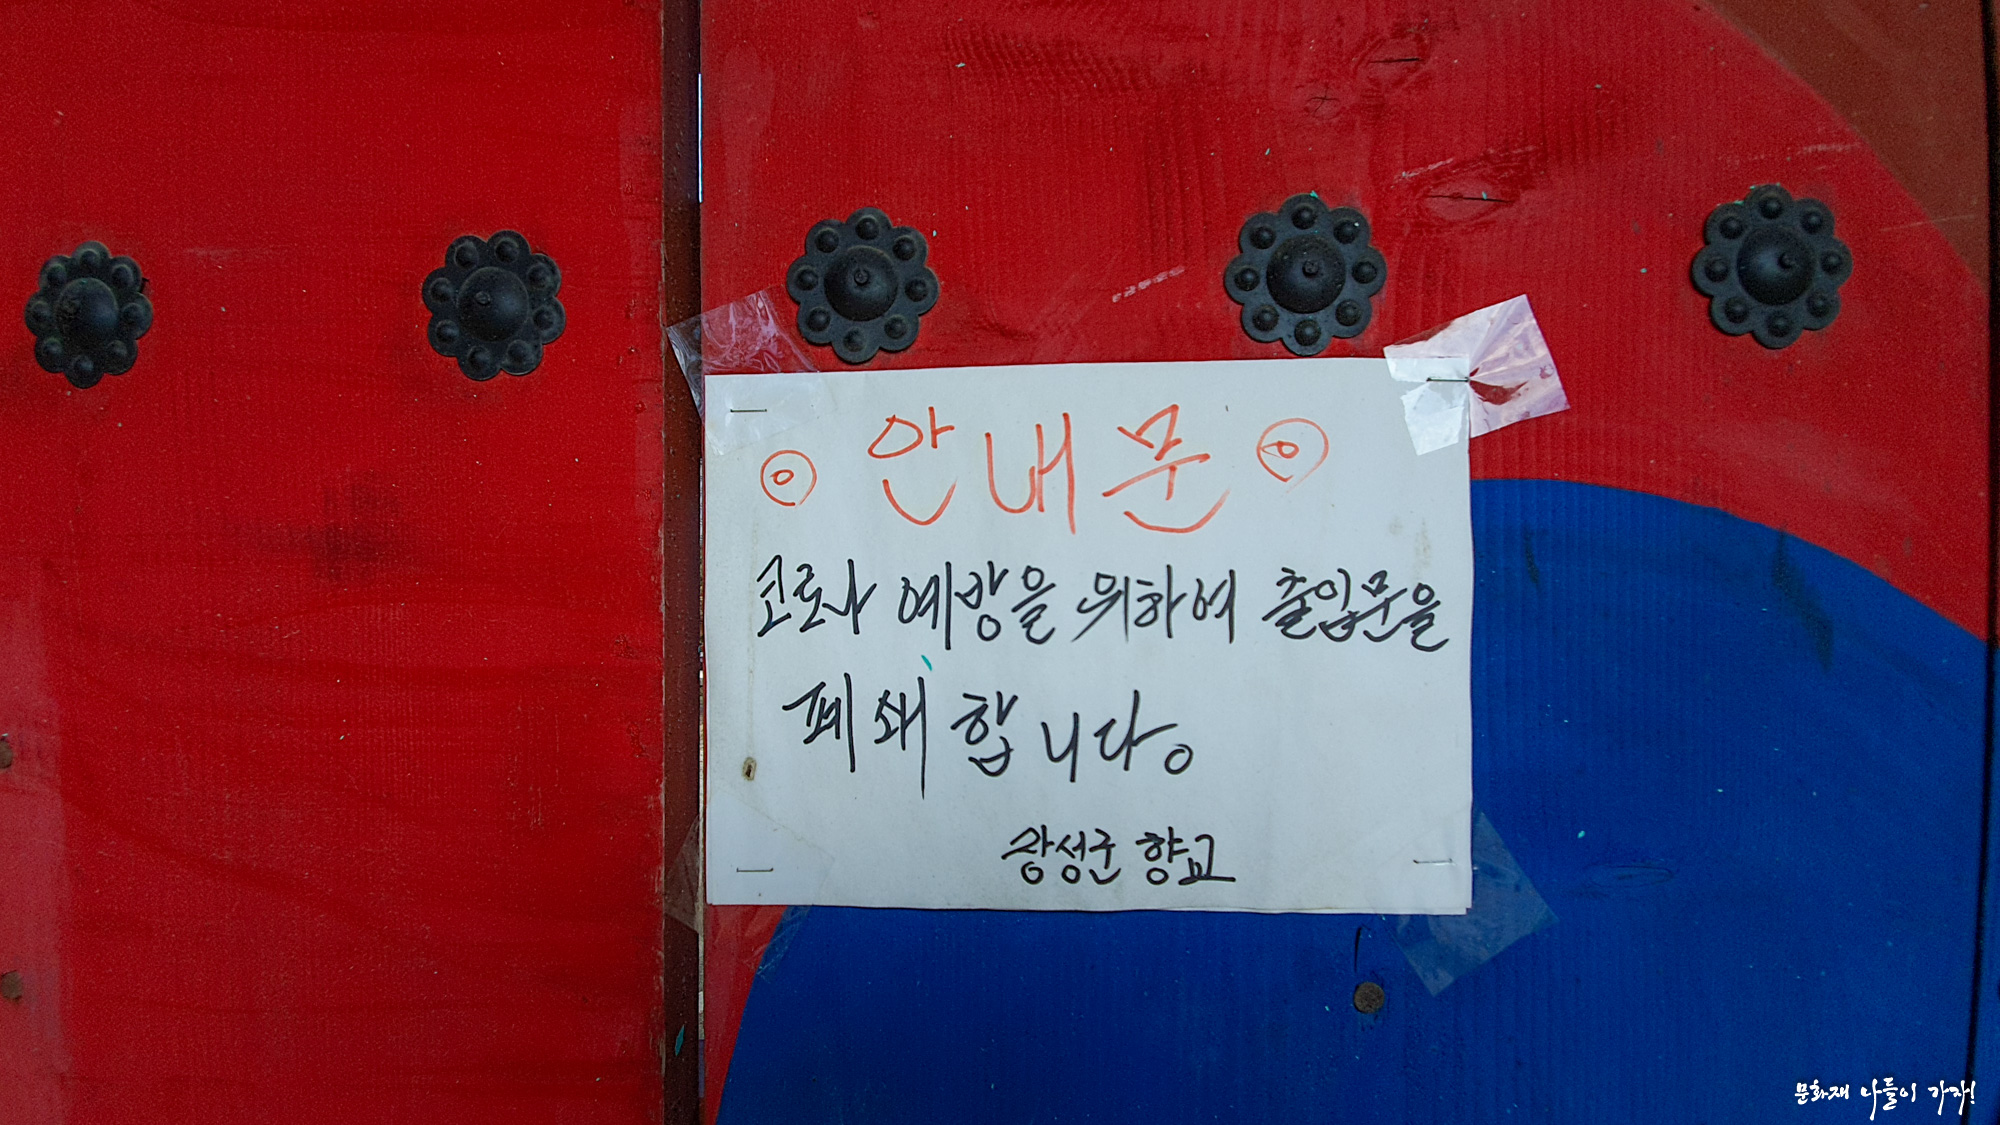 ◎ 안내문 ◎
코로나 예방을 위하여 출입문을
폐쇄합니다。
장성군 향교
문화재 나들이 가자!